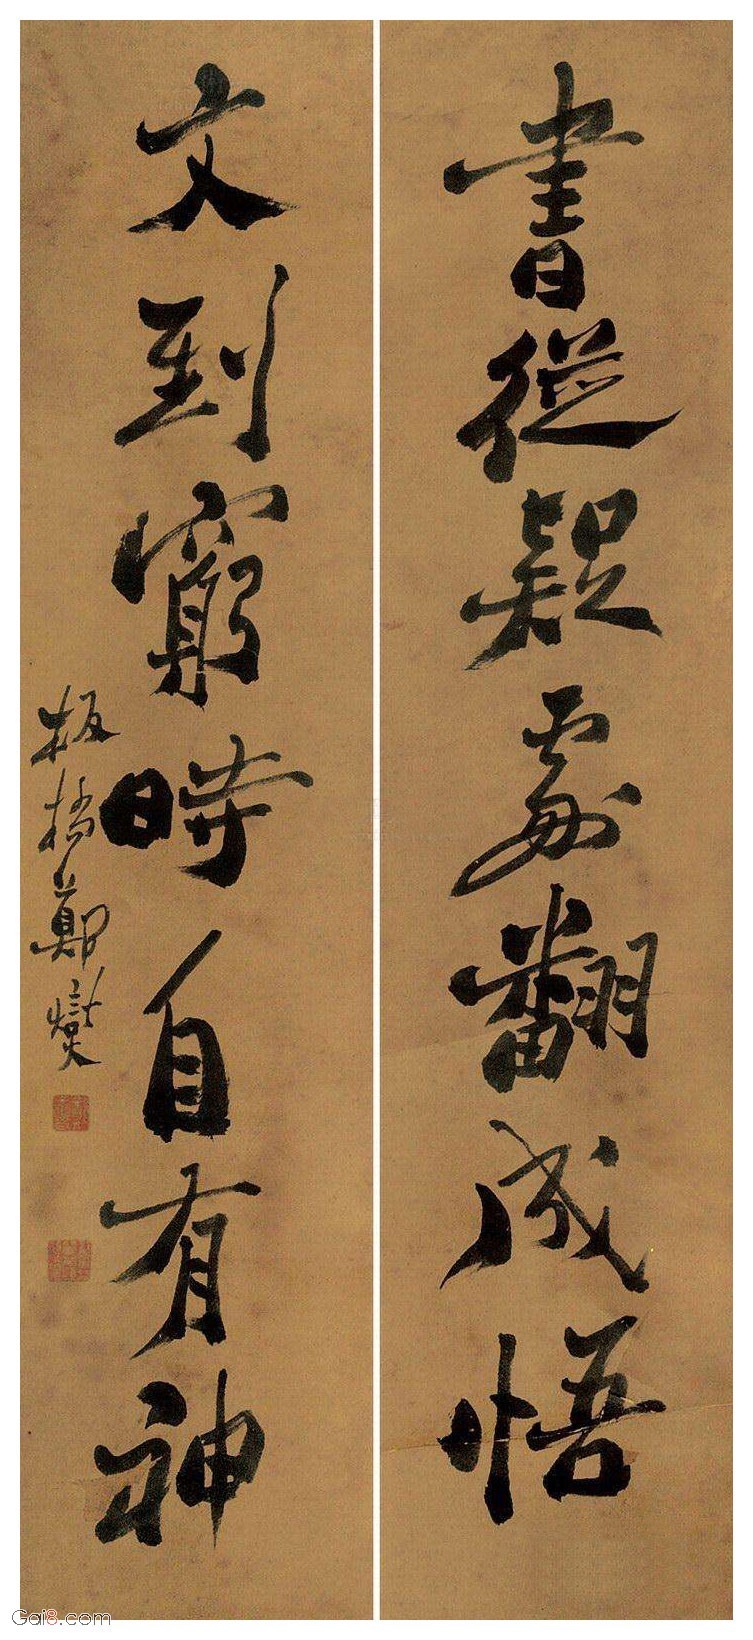 書從疑處翻成悟
文到窮時自有神
板橋鄭燮
Gai8.com